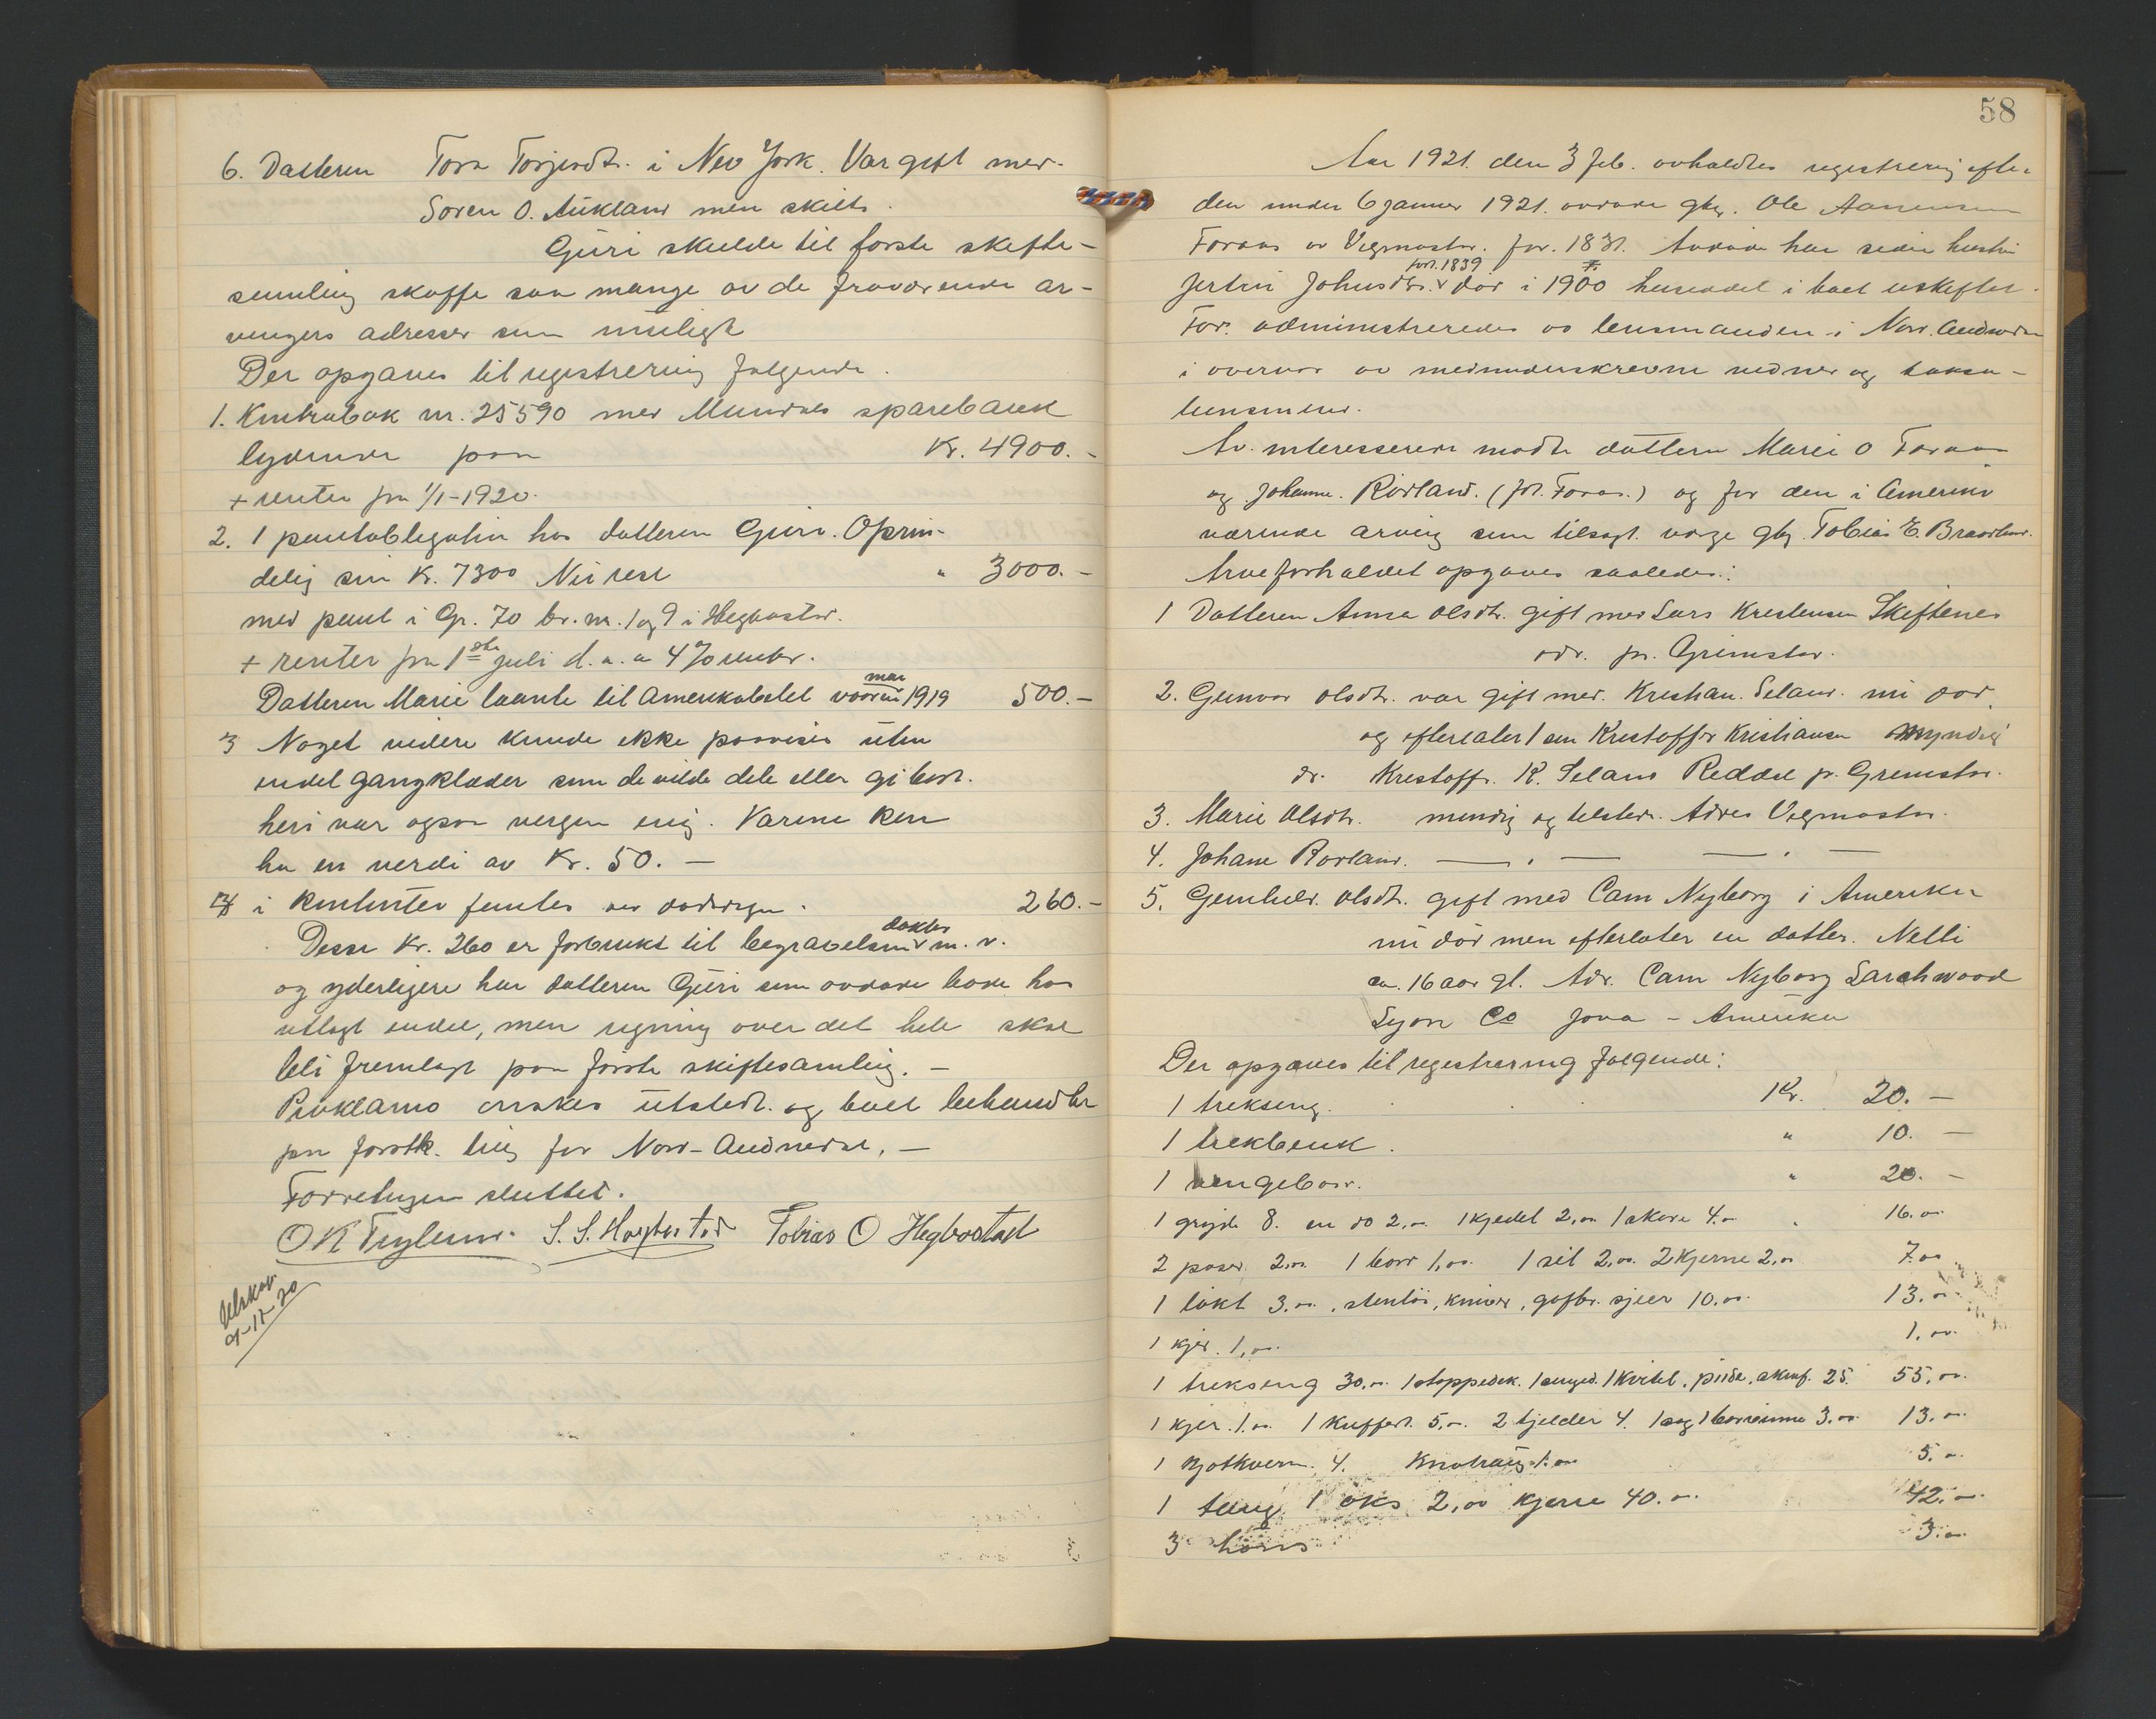 6. Datteren Tora Torjersdtr. i New York. Var gift med
Søren O. Aukland men skilt.
Guri skulde til første skifte-
samling skaffe saa mange av de fraværende ar-
vingers adresser som muligt
Der opgaves til registrering følgende.
1. Kontrabok nr. 25590 med Mandals sparebank
lydende paa Kr. 4900.-
+ renter fra 1/1-1920.
2. 1 pantobligation hos datteren Guri. Oprin-
delig sin Kr. 7300 Nu rest " 3000.-
med pant i Gr. 70 br. nr. 1 og 9 i Hegbostad.
+ renter fra 1ste juli d. a. a 4 % renter.
mai
Datteren Marie laante til Amerikabillet vaaren 1919 500.-
3 Noget videre kunde ikke paavises uten
endel gangklæder som de vilde dele eller gi bort.
heri var ogsaa vergen enig. Varene kan
ha en verdi av Kr. 50.-
4 i kontanter fantes ved dødsdagen. 260.-
dokter
Disse Kr. 260 er forbrukt til begravelsen m. v.
og yderligere har datteren Guri som avdøde bode hos
utlagt endel, men regning over det hele skal
bli fremlagt paa første skiftesamling.-
Proklama ønskes utstedt og boet behandlet
paa førstk. ting for Nord-Audnedal.-
Forretningen sluttet.
OK Tryland. S. S. Hægbostad Tobias O Hegbostad
Utskr.
9-12-20
58
Aar 1921. den 3 feb. avholdtes registrering efter
den under 6 januar 1921. avdøde gbr. Ole Aanensen
Foraas av Vigmostad. før. 1831. Avdøde har siden hustru
født. 1839
Jertru Johnsdtr. død i 1900 hensiddet i boet uskiftet.
For. administreredes av lensmanden i Nord. Audnedal
i overvær av medunderskrevne vidner og takst-
mænd.
Av interesserede mødte datteren Marie O Foraas
og Johanne Rørland. (før. Foraas.) og for den i Amerika
værende arving som tilsagt verge gbr. Tobias E. Braadland.
Arveforholdet opgaves saaledes:
1 Datteren Anna Olsdtr. gift med Lars Kristensen Skiftenes
adr. pr. Grimstad.
2. Gunvor Olsdtr. var gift med Kristian Seland. nu død,
og efterlater 1 søn Kristoffer Kristiansen myndig
dr. Kristoffr. K. Seland Reddal pr. Grimstad.
3. Marie Olsdtr. myndig og tilsted. Adres Vigmostad.
4. Johane Rørland. — " — — " —
5. Gunhild. Olsdtr. gift med Cam Nyborg i Amerika
nu død men efterlater en datter. Nelli
ca. 16 aar gl. Adr. Cam Nyborg Larchwood
Lyon Co Jova - Amerika
Der opgaves til registrering følgende:
1 trekseng. Kr. 20.-
1 trekbenk. " 10.-
1 hengebord. " 20.-
1 gryde 8. en do 2,00 1 kjedel 2,00 1 skore 4.00 16.00
2 poser 2,00 1 bord 1,00. 1 sil 2,00. 2 kjerne 2,00 7.00
1 løkt 3.00, stentøi, kniver, gafler, sjeer 10.00. 13.00
1 kjer. 1,00. 1.00
1 trekseng 30.00. 1 stoppedek. 1 senged. 1 kvitel, pude, skinf. 25. 55,00.
1 kjer. 1.00. 1 kuffert. 5,00. 2 tjelder 4. 1 sag 1 3.00. 13.00
1 kjøtkvern. 4. 1.00 5.00
1 tang 1 øks 2,00 kjerre 40.00 42.00
3 høns 3.00